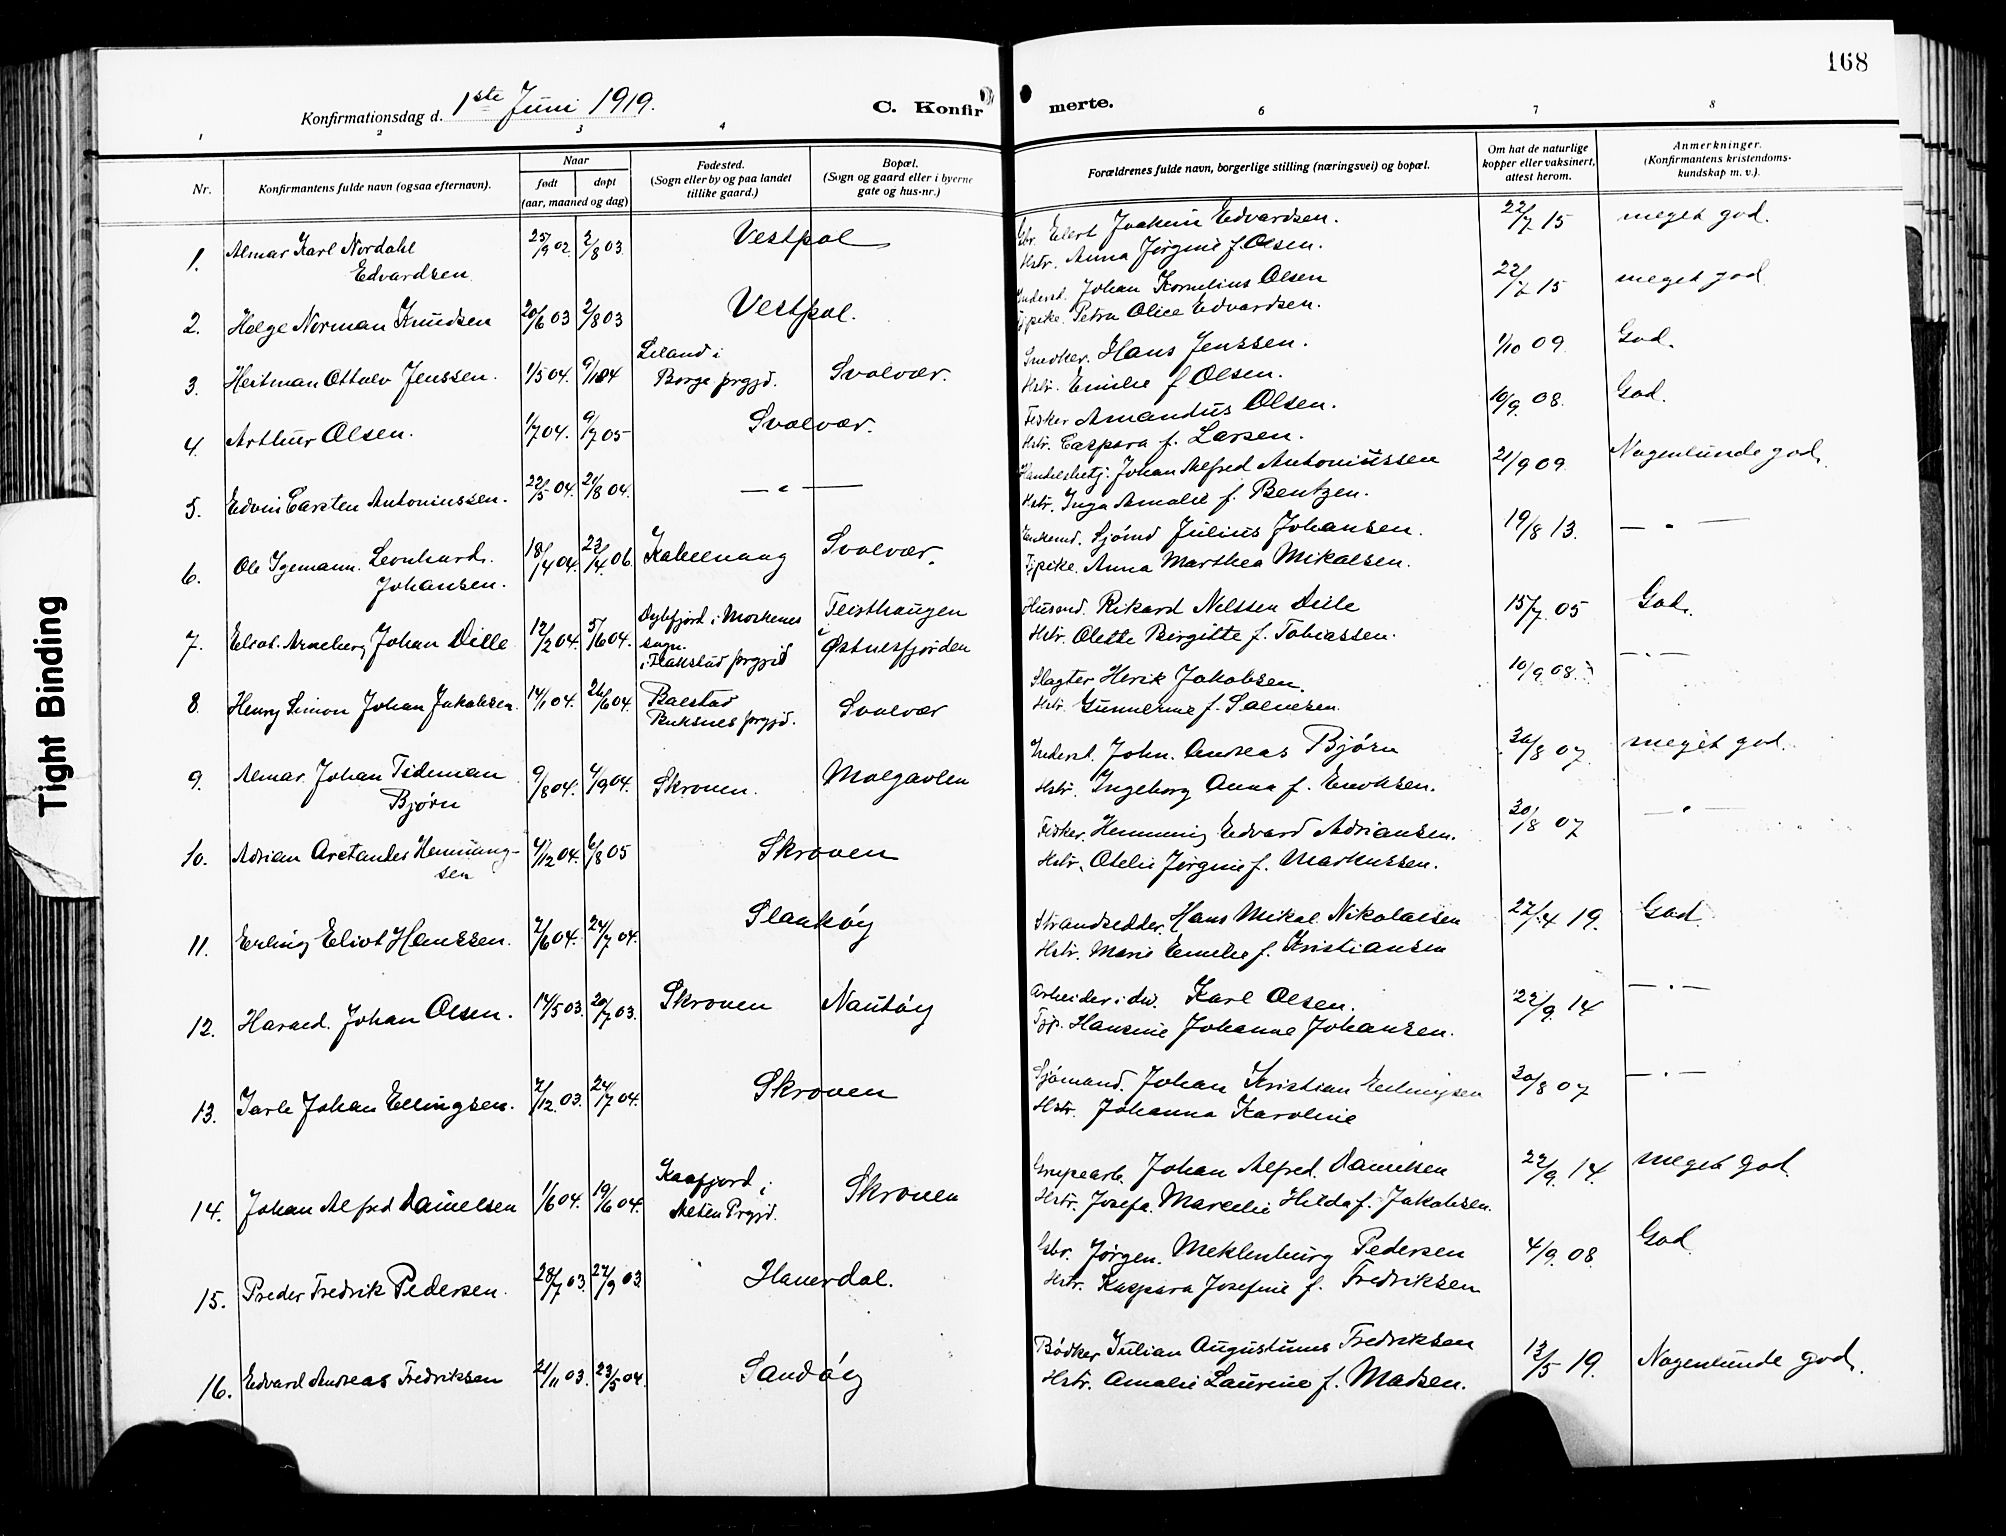 168
Konfirmationsdag d. 1ste Juni 1919.
C. Konfirmerte.
1 2 3 4 6 7 8
Nr.
Konfirmantens fulde navn (ogsaa efternavn).
Naar
født døpt
(aar, maaned og dag)
Fødested.
(Sogn eller by og paa landet
tillike gaard.)
Bopæl.
(Sogn og gaard eller i byerne
gate og hus-nr.)
Forældrenes fulde navn, borgerlige stilling (næringsvei) og bopæl.
Om hat de naturlige
kopper eller vaksinert,
attest herom.
Anmerkninger.
(Konfirmantens kristendoms-
kundskap m. v.).
1. Almar Karl Nordahl
Edvardsen
25/9 02. 2/8 03
Vestpol
Gbr. Elert Joakim Edvardsen.
Hstr. Anna Jørgine f. Olsen.
22/7 15
meget god.
2. Helge Norman Knudsen
20/6 03 2/8 03
Vestpol.
Inderst. Johan Kornelius Olsen
Tjpike. Petra Olice Edvardsen.
22/7 15
meget god
3. Heitman Ottolv Jenssen.
1/5 04. 9/10 04
Leland i
Borge prgjd.
Svolvær.
Snedker. Hans Jenssen.
Hstr. Emilie f. Olsen.
1/10 09.
God.
4. Arthur Olsen.
1/7 04. 9/7 05
Svolvær.
Fisker Amandus Olsen.
Hstr. Caspara f. Larsen.
10/9. 08.
God.
5. Edvin Carsten Antoniussen.
22/5 04. 21/8 04.
— " —
Handelsbetj. Johan Alfred Antoniussen
Hstr. Inga Amalie f. Bentzen.
21/9 09.
Nogenlunde god.
6. Ole Igemann. Leonhard.
Johansen.
18/4 04. 23/4 06.
Kabelvaag
Svolvær.
Enkemd. Sjømd Julius Johansen.
Tjpike. Anna Marthea Mikalsen.
19/8 13.
— " —
7. Eliot. Arneberg Johan Dille
12/2 04. 5/6 04.
i Moskenes
sogn.
i Flakstad prgjd
Teisthaugen
i
Østnesfjorden
Husmd. Rikard Nilssen Dille
Hstr. Olette Birgitte f. Tobiassen.
15/7. 05
God.
8. Henry Simon Johan Jakobsen.
14/1 04. 26/6 04.
Balstad
Buksnes prgjd.
Svolvær
Slagter Herik Jakobsen.
Hstr. f.
10/9. 08.
— " —
9. Almar. Johan Tideman
Bjørn
9/8 04. 4/9 04.
Skroven.
Molgavlen
Inderst. John. Andreas Bjørn
Hstr. Ingeborg Anna f. Eriksen.
30/8 07
meget god.
10. Adrian Arctander Hemming-
sen
4/12 04. 6/8 05
Skroven
Fisker. Hemming Edvard Adriansen.
Hstr. Otelie Jørgine f. Markussen.
30/8 07
— " —
11. Erling Eliot Hanssen.
2/6 04. 24/7 04.
Slankøy
Strandsedder. Hans Mikal Nikolaisen
Hstr. Marie Emilie f. Kristiansen
22/4 19.
God.
12. Harald. Johan Olsen.
14/5 03. 20/7 03.
Skroven
Nautøy
Arbeider i dw. Karl Olsen.
Tjp. Hansine Johanne Johansen.
22/9. 14
— " —
13. Jarle Johan Ellingsen.
2/12. 03. 24/7 04.
Skroven
Sjømand. Johan Kristian Ellingsen
Hstr. Johanna Karoline
30/8 07
— " —
14. Johan Alfred Danielsen
1/6 04. 19/6 04.
Kaafjord i
Alten Prgjd.
Skroven
Grupearb. Johan Alfred. Danielsen
Hstr. Josefa. Marcelie Hilda f. Jakobsen.
22/9. 14
meget god.
15. Peder Fredrik Pedersen.
28/7 03. 27/9 03.
Haverdal.
Gbr. Jørgen. Meklenburg Pedersen
Hstr. Kaspara Josefine f. Fredriksen
4/9. 08.
God.
16. Edvard Andreas Fredriksen
21/11 03. 23/5 04.
Sandøy
Bødker Julian Augustinus Fredriksen
Hstr. Amalie Laurine f. Madsen.
13/5 19.
Nogenlunde god.
Tight Binding